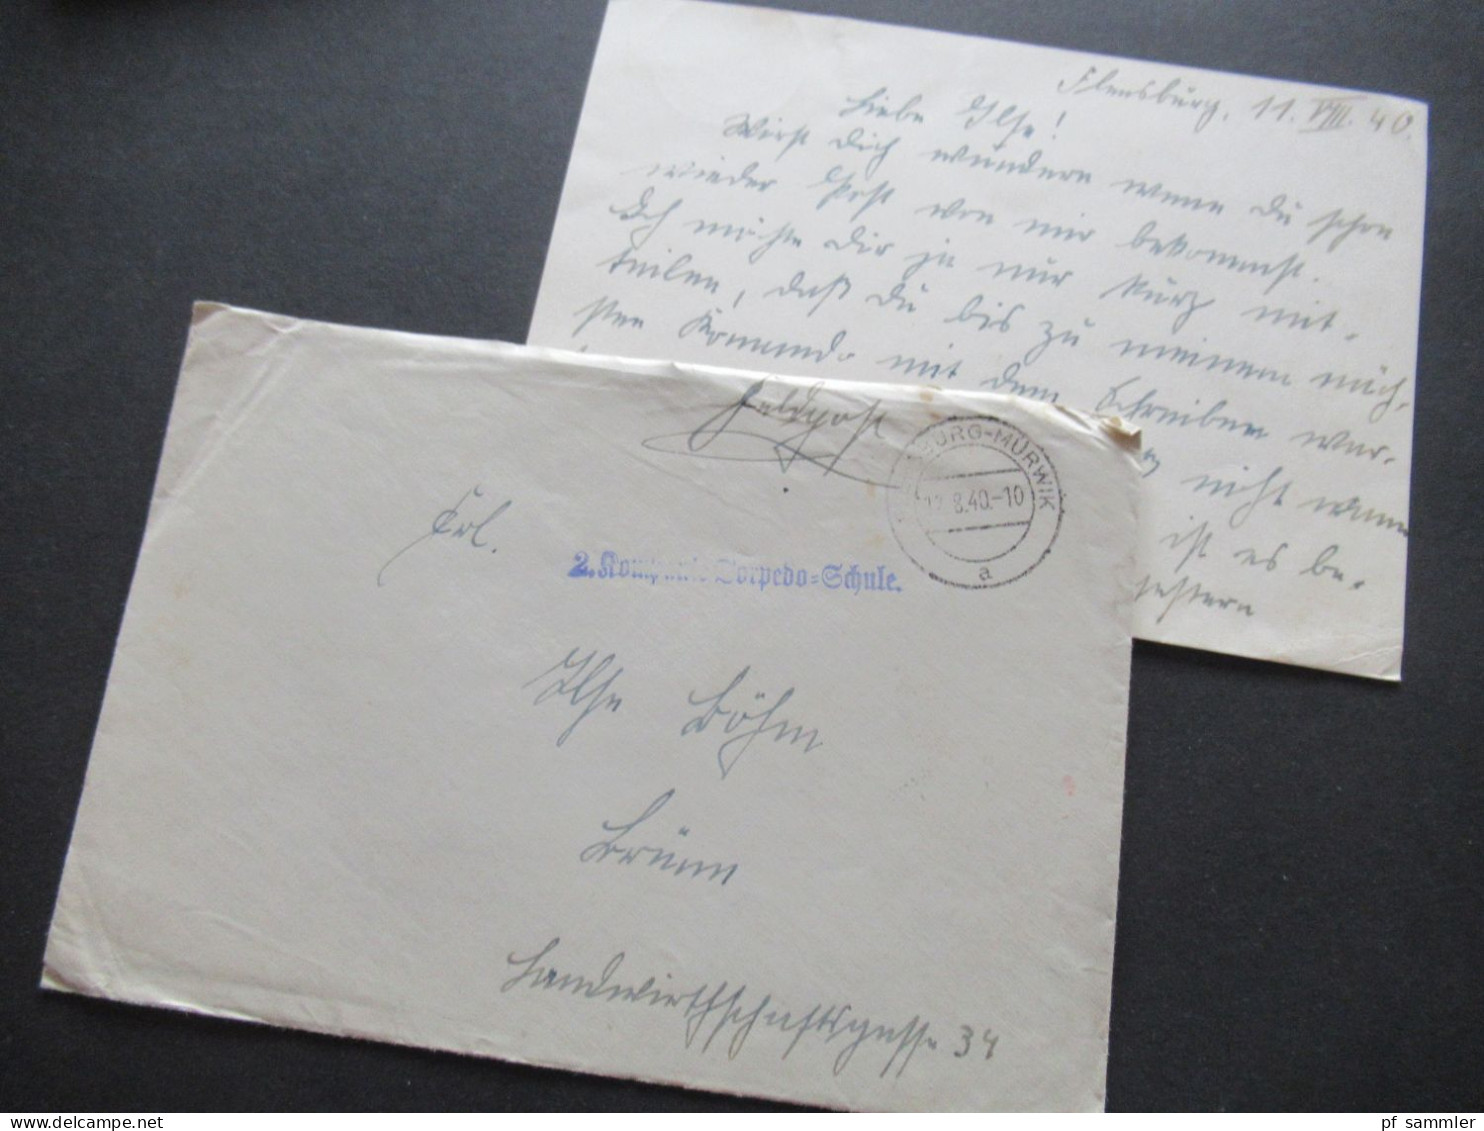 Flensburg, 11. VIII. 40.
Liebe Ilse!
Wirst Dich wundern wenn Du schon
wieder Post von mir bekommst.
Ich möchte Dir ja nur kurz mit-
teilen, daß Du bis zu meinem näch-
sten Komando mit dem Schreiben war-
nicht wann
ist es be-
gestern
Feldpost
BURG-MÜRWIK
12.8.40.-10
a
2. Kompanie Torpedo=Schule.
Frl.
Ilse Böhm
Brünn
Landwirthschaftsgasse 34
pf_sammler